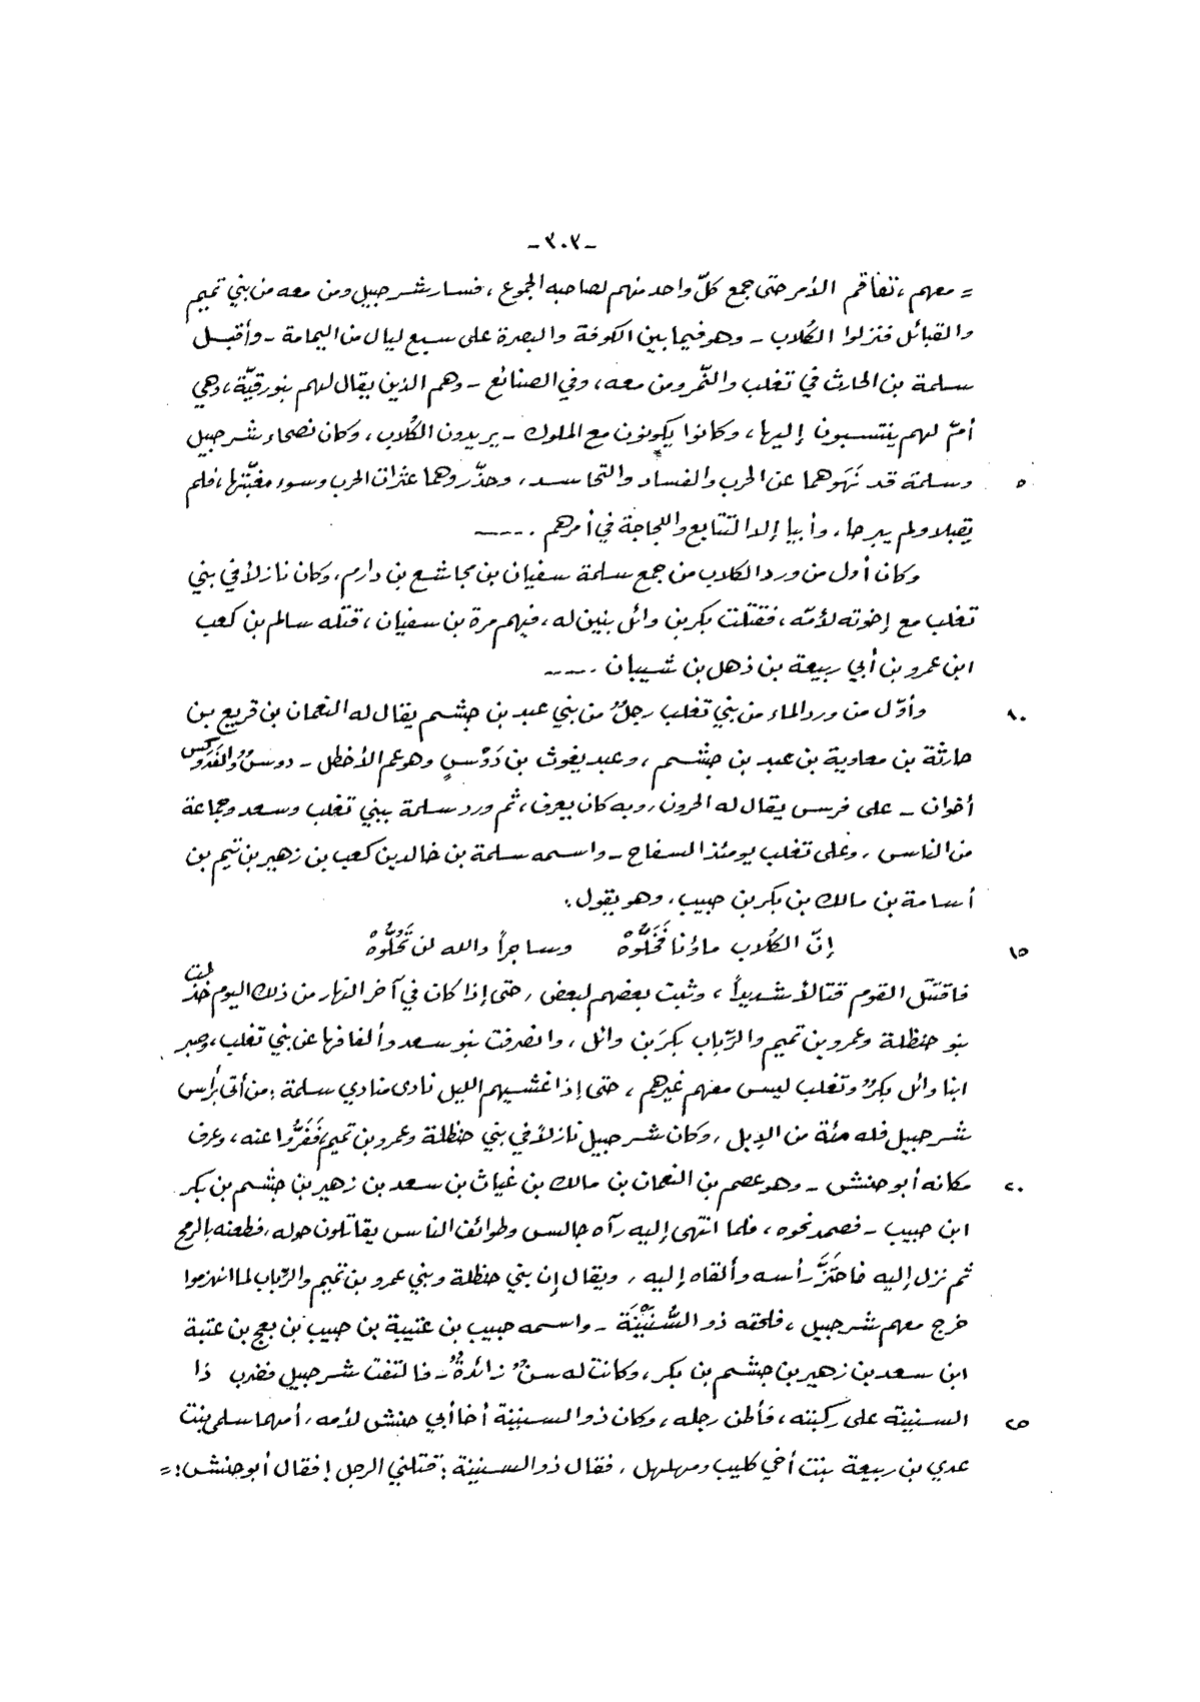 -٣٠٣-
= معهم، تفاقم الأمر حتى جمع كلّ واحد منهم لصاحبه الجموع، فسار شرحبيل ومن معه من بني تميم
والقبائل فنزلوا الكُلاب - وهو فيما بين الكوفة والبصرة على سبع ليال من اليمامة - وأقبل
سلمة بن الحارث في تغلب والنّمر ومن معه، وفي الصنائع - وهم الذين يقال لهم بنو رقيّة، وهي
أمّ لهم ينتسبون إليها، وكانوا يكونون مع الملوك - يريدون الكُلاب، وكان نصحاء شرحبيل
٥ وسلمة قد نَهَوهما عن الحرب والفساد والتحاسد، وحذّروهما عثرات الحرب وسوء مغبّتها، فلم
يقبلا ولم يبرحا، وأبيا إلا التتابع واللجاجة في أمرهم .----
وكان أول من ورد الكلاب من جمع سلمة سفيان بن مجاشع بن دارم، وكان نازلاً في بني
تغلب مع إخوته لأمّه، فقتلت بكر بن وائل بنين له، فيهم مرة بن سفيان، قتله سالم بن كعب
ابن عمرو بن أبي ربيعة بن ذهل بن شيبان .----
١٠ وأوّل من ورد الماء من بني تغلب رجلٌ من بني عبد بن جشم يقال له النعمان بن قريع بن
حارثة بن معاوية بن عبد بن جشم، وعبد يغوث بن دَوْسٍ وهو عم الأخطل - دوسٌ والفَدَوْكس
أخوان - على فرس يقال له الحرون، وبه كان يعرف، ثم ورد سلمة ببني تغلب وسعد وجماعة
من الناس، وعلى تغلب يومئذ السفاح - واسمه سلمة بن خالد بن كعب بن زهير بن تيم بن
أسامة بن مالك بن بكر بن حبيب، وهو يقول:
١٥ إنّ الكُلاب ماؤنا فَخَلُّوهْ وساجراً والله لن تَحُلُّوهْ
فاقتتل القوم قتالاً شديداً، وثبت بعضهم لبعض، حتى إذا كان في آخر النهار من ذلك اليوم خذلت
بنو حنظلة وعمرو بن تميم والرّباب بكرَ بن وائل، وانصرفت بنو سعد وألفافها عن بني تغلب، وصبر
ابنا وائل بكرٌ وتغلب ليس معهم غيرهم، حتى إذا غشيهم الليل نادى منادي سلمة: من أتى برأس
شرحبيل فله مئة من الإبل، وكان شرحبيل نازلاً في بني حنظلة وعمرو بن تميم، فَفَرُّوا عنه، وعرف
٢٠ مكانه أبو حنش - وهو عصم بن النعمان بن مالك بن غياث بن سعد بن زهير بن جشم بن بكر
ابن حبيب - فصمد نحوه، فلما انتهى إليه رآه جالس وطوائف الناس يقاتلون حوله، فطعنه بالرمح
ثم نزل إليه فاحتَزَّ رأسه وألقاه إليه، ويقال إن بني حنظلة وبني عمرو بن تميم والرّباب لما انهزموا
خرج معهم شرحبيل، فلحقه ذو السُّنَيْنَة - واسمه حبيب بن عتيبة بن حبيب بن بعج بن عتبة
ابن سعد بن زهير بن جشم بن بكر، وكانت له سنٌ زائدةٌ - فالتفت شرحبيل فضرب ذا
٢٥ السنينة على ركبته، فأطن رجله، وكان ذو السنينة أخا أبي حنش لأمه، أمهما سلمى بنت
عدي بن ربيعة بنت أخي كليب ومهلهل، فقال ذو السنينة: قتلني الرجل! فقال أبو حنش: =